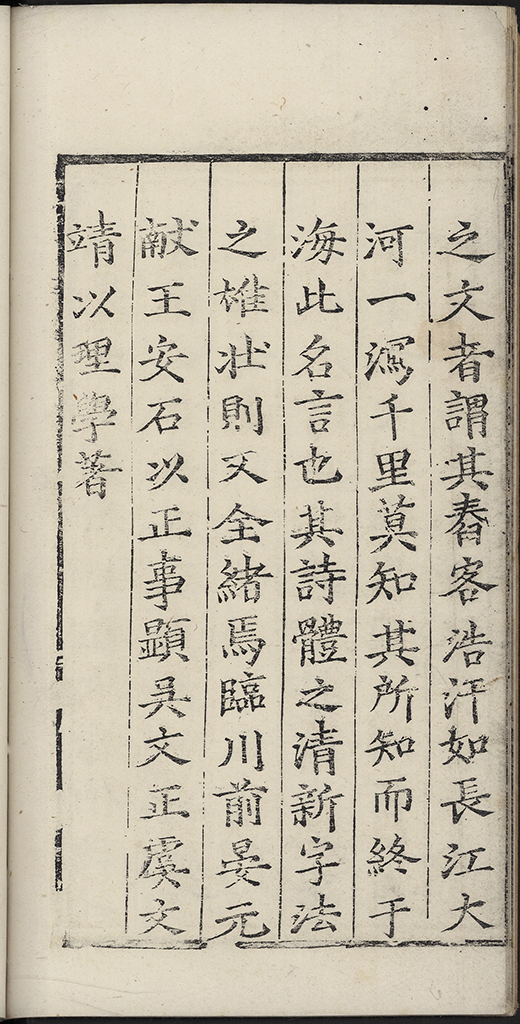 之文者謂其舂容浩汗如長江大
河一瀉千里莫知其所知而終于
海此名言也其詩體之清新字法
之雄壯則又全緒焉臨川前晏元
献王安石以正事顕吳文正虞文
靖以理學著